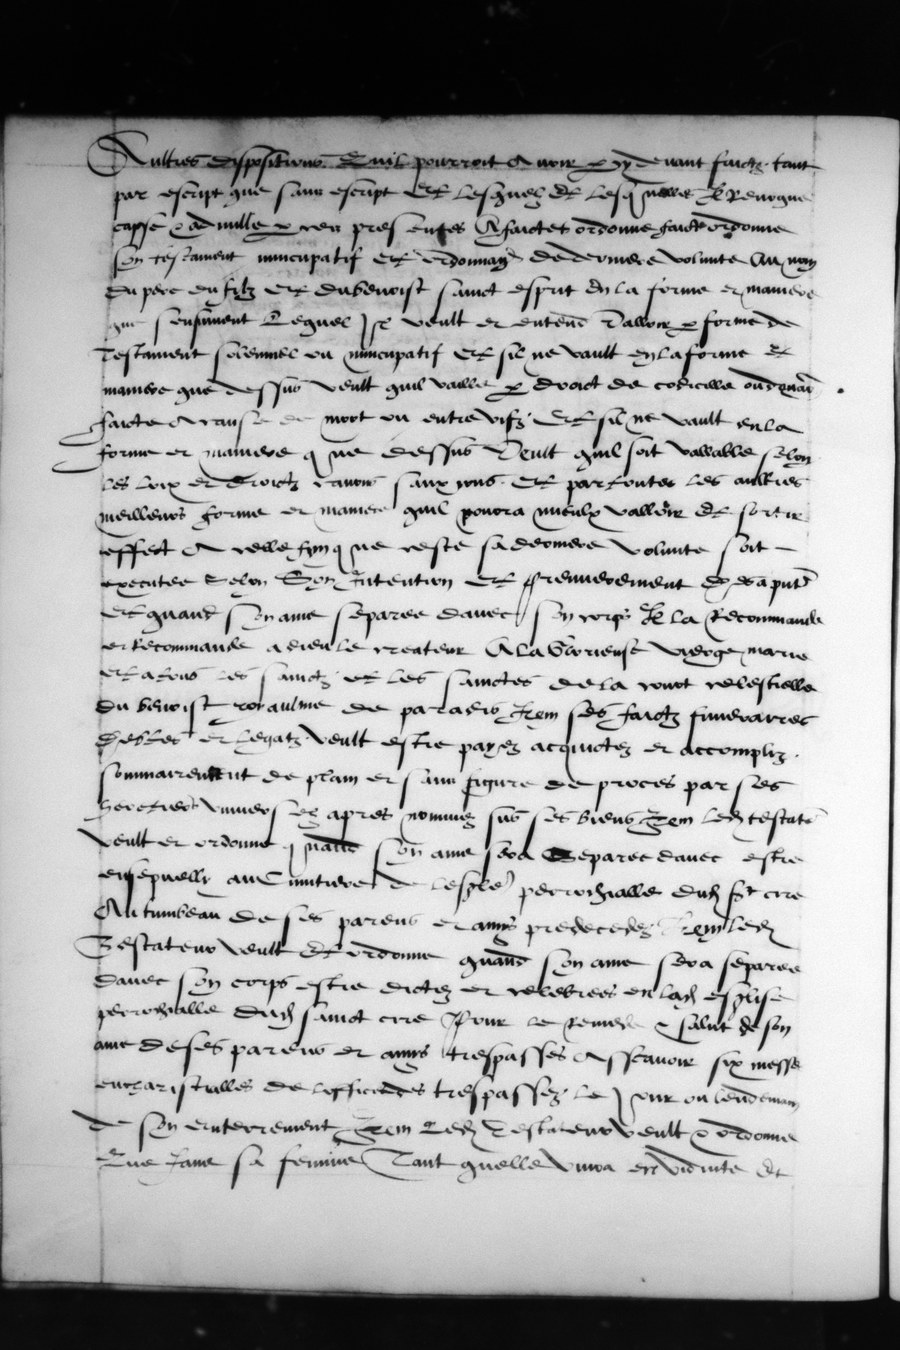 Aultres dispositions Quil pourroit Avoir p cy devant faictz tant
par escript que sans escript Et lesquelz Et lesquelles Il Revoque
casse & adnulle p ces presentes A faict et ordonne faict & ordonne
son testament nuncupatif et ordonnance de derniere volunte Au nom
du pere du filz et du benoist sainct esprit En la forme et maniere
que sensuyvent Lequel Il veult et entend valloir p forme de
Testament solennel ou nuncupatif Et sil ne vault en la forme et
maniere que dessus veult quil vaille p droict de codicille ou donacion
faicte A cause de mort ou entre vifz Et sil ne vault en la
forme et maniere que dessus Veult quil soit vallable selon
les loix et droictz canons sanxions Et par toutes les aultres
meilleurs forme et maniere quil pourra mieulx valloir Et sortir
effect A celle fin que ceste sa derniere volunte soit
executee Selon Son Intention Et Premierement des a present
Et quand son ame separee davec son corps Il la Recommande
et Recommande a dieu le createur A la Glorieuse vierge marie
et a tous les sainctz et les sainctes de la court celestielle
du benoist royaulme de paradis Item ses faictz funerarres
debtes et legatz veult estre payez acquictez et accomplis
sommairement de plain et sans figure de proces par ses
heretiers universelz apres nommez sus ses biens Item led testateur
veult et ordonne quand son ame sera Separee davec estre
ensepuelly au Cimitiere de lesglise perrochialle dud st cire
Au tumbeau de ses parens et amys predecedez Item led
Testateur veult Et ordonne quand son ame sera separee
davec son corps estre dictez et celebrees en lad esglise
perrochialle dud sainct cire Pour le remede & salut de son
ame de ses parens et amys trespasses Asscavoir six messes
eucharistialles de lofficedes trespassez le Jour ou lendemain
de son enterrement Item Led Testateur veult & ordonne
Que Jane sa femme Tant quelle vivra en viduite Et